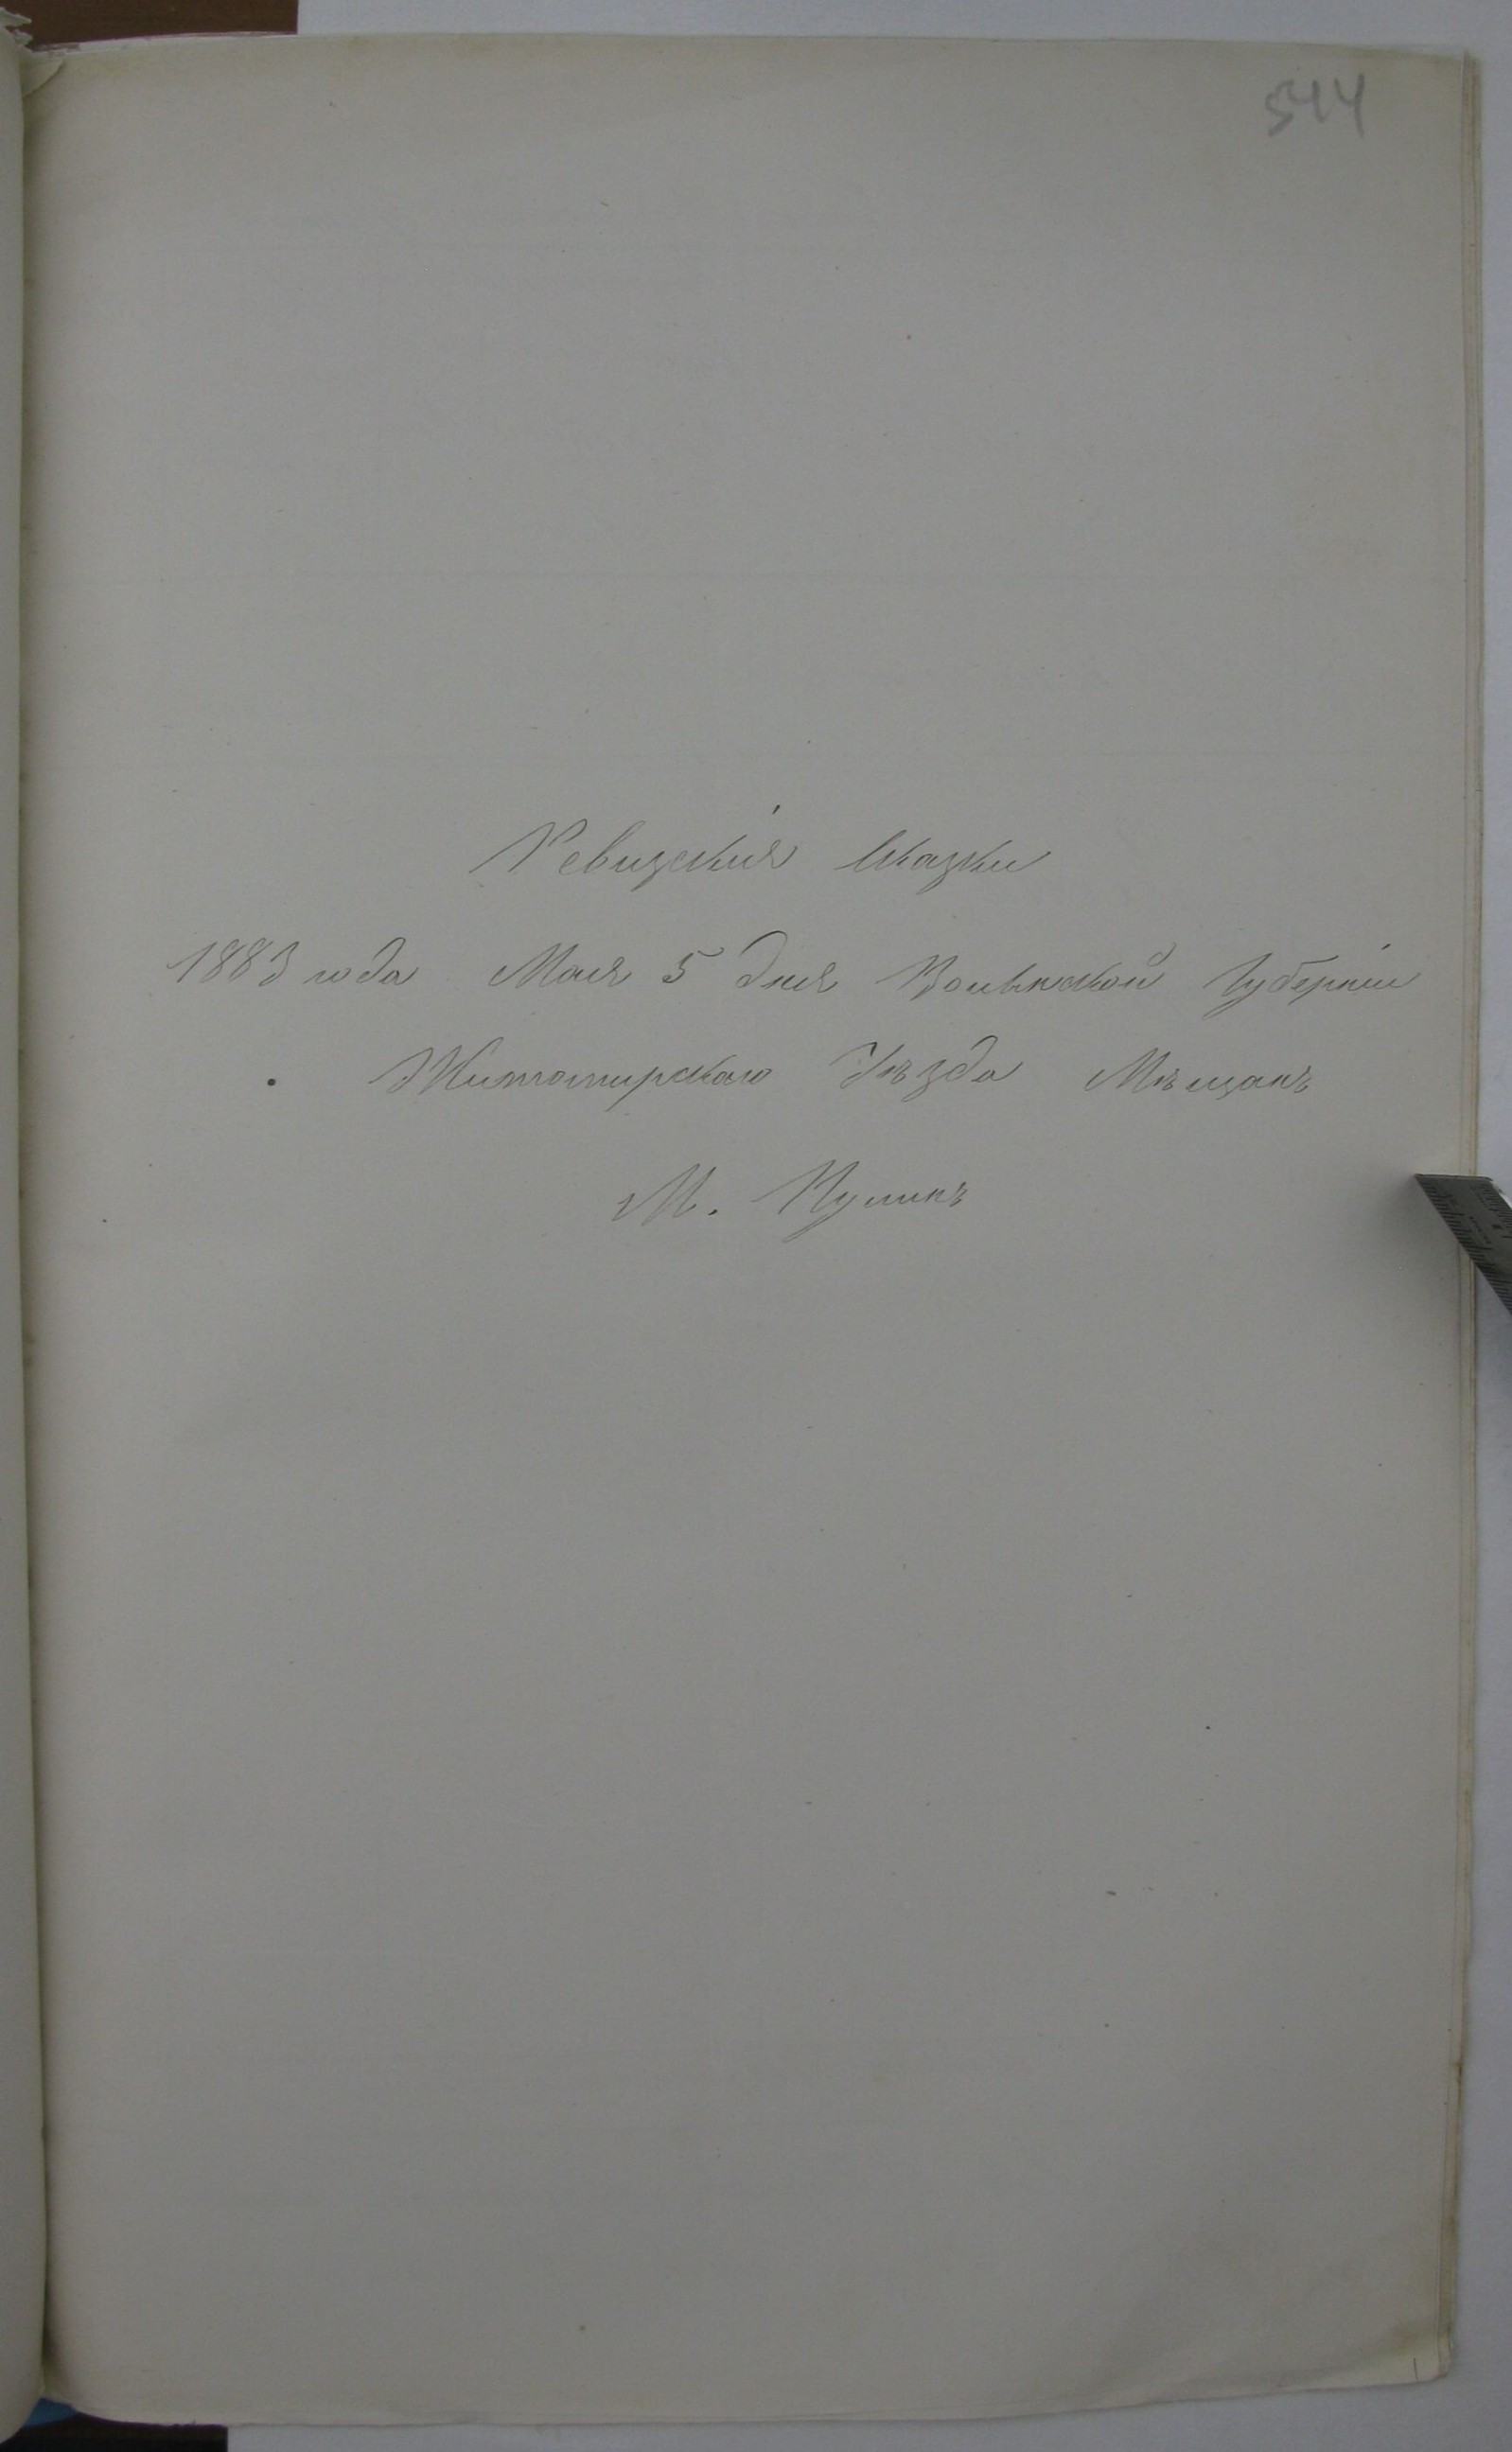 544
Ревизскія Сказки
1883 года Мая 5 дня Волынской Губерніи
Житомирскаго Уѣзда Мѣщанъ
М. Пулинъ